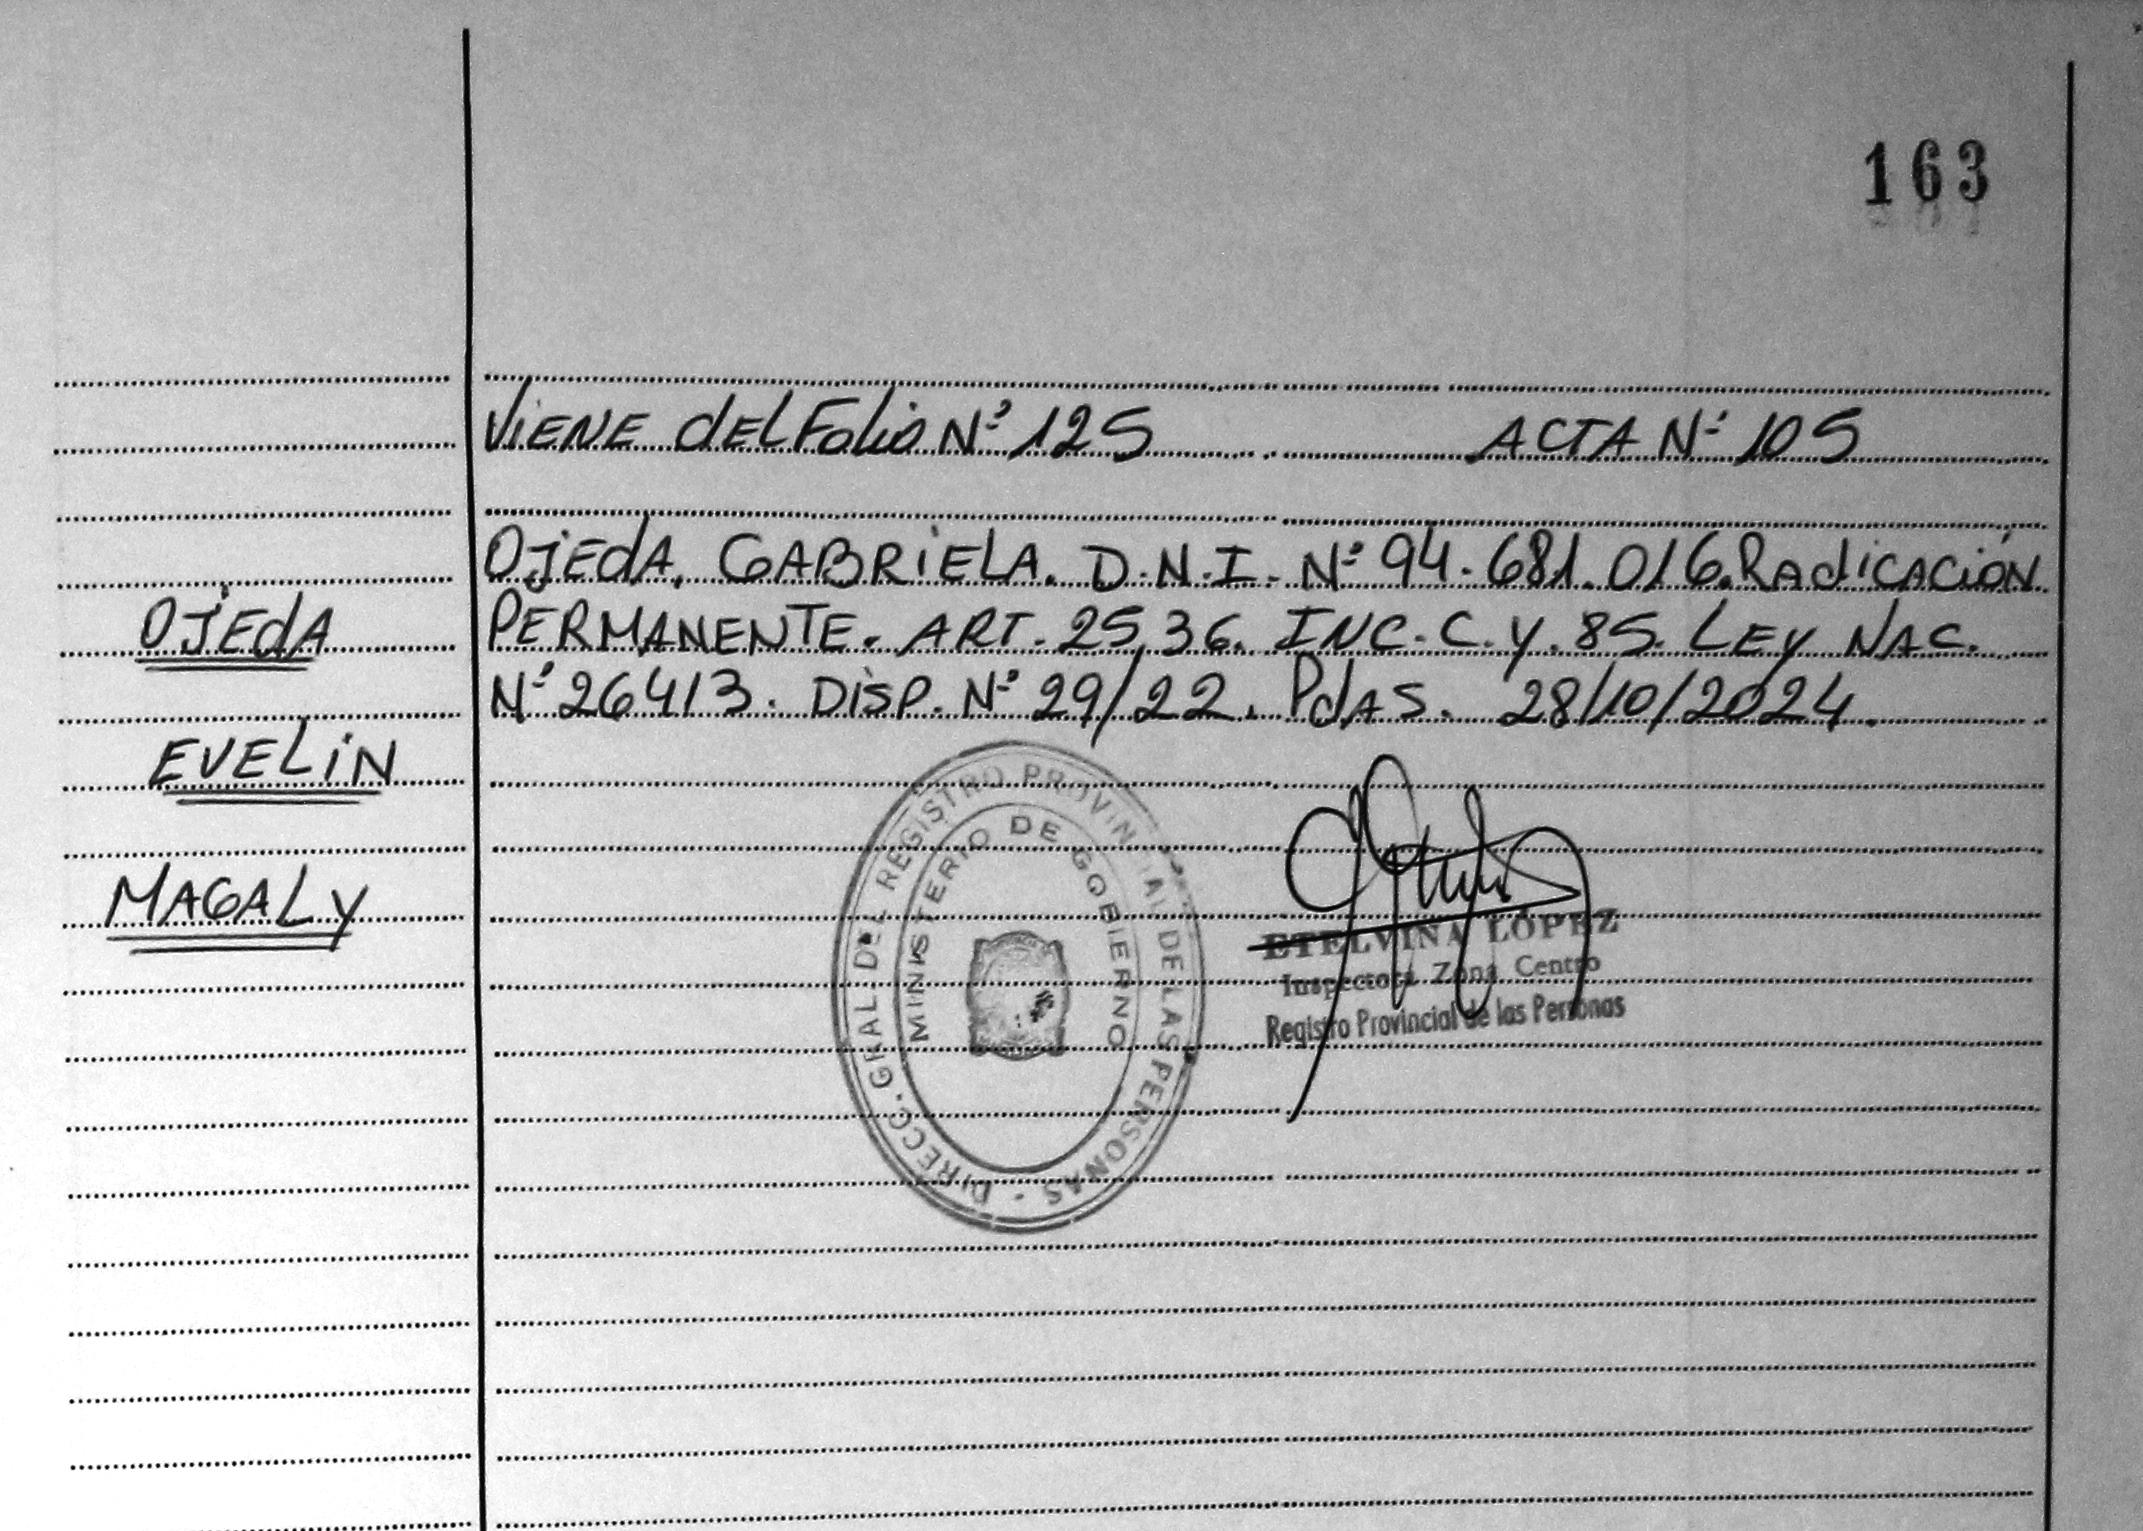 163
Viene del Folio Nº 125 ACTA Nº 105
OJEDA, GABRIELA. D.N.I. Nº 94.681.016. RADICACIÓN
PERMANENTE. ART. 25, 36. INC. C. Y. 85. LEY NAC.
Nº 26413. DISP. Nº 29/22. PdAS. 28/10/2024.
OJEDA
EVELIN
MAGALY
DIRECC. GRAL. DEL REGISTRO PROVINCIAL DE LAS PERSONAS -
MINISTERIO DE GOBIERNO
ETELVINA LÓPEZ
Inspectora Zona Centro
Registro Provincial de las Personas